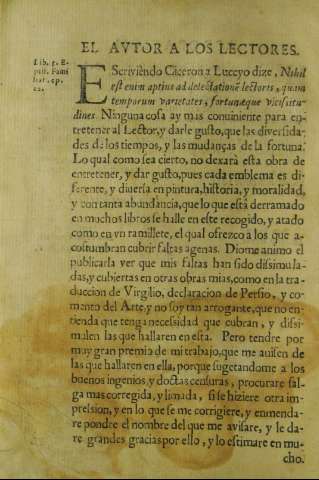 EL AVTOR A LOS LECTORES.
Lib. 5. E-
pist. Fami
liar. ep.
12.
EScriviẽdo Ciceron a Lucceyo dize, Nihil
est enim aptius ad delectationẽ lectoris, quam
temporum varietates, fortunæque vicissitu
dines. Ninguna cosa ay mas conuiniente para en-
tretener al Lector, y darle gusto, que las diversida-
des de los tiempos, y las mudanças de la fortuna.
Lo qual como sea cierto, no dexarà esta obra de
entretener, y dar gusto, pues cada emblema es di-
ferente, y diuersa en pintura, historia, y moralidad,
y con tanta abundancia, que lo que està derramado
en muchos libros se halle en este recogido, y atado
como en vn ramillete, el qual ofrezco a los que a-
costumbran cubrir faltas agenas. Diome animo el
publicarla ver que mis faltas han sido dissimula-
das, y cubiertas en otras obras mias, como en la tra-
duccion de Virgilio, declaracion de Persio, y co-
mento del Arte, y no soy tan arrogante, que no en-
tienda que tenga necessidad que cubran, y dissi-
mulen las que hallaren en esta. Pero tendre por
muy gran premio de mi trabajo, que me auisen de
las que hallaren en ella, porque sugetandome a los
buenos ingenios, y doctas censuras, procurare sal-
ga mas corregida, y limada, si se hiziere otra im-
pression, y en lo que se me corrigiere, y enmenda-
re pondre el nombre del que me avisare, y le da-
re grandes gracias por ello, y lo estimare en mu-
cho.